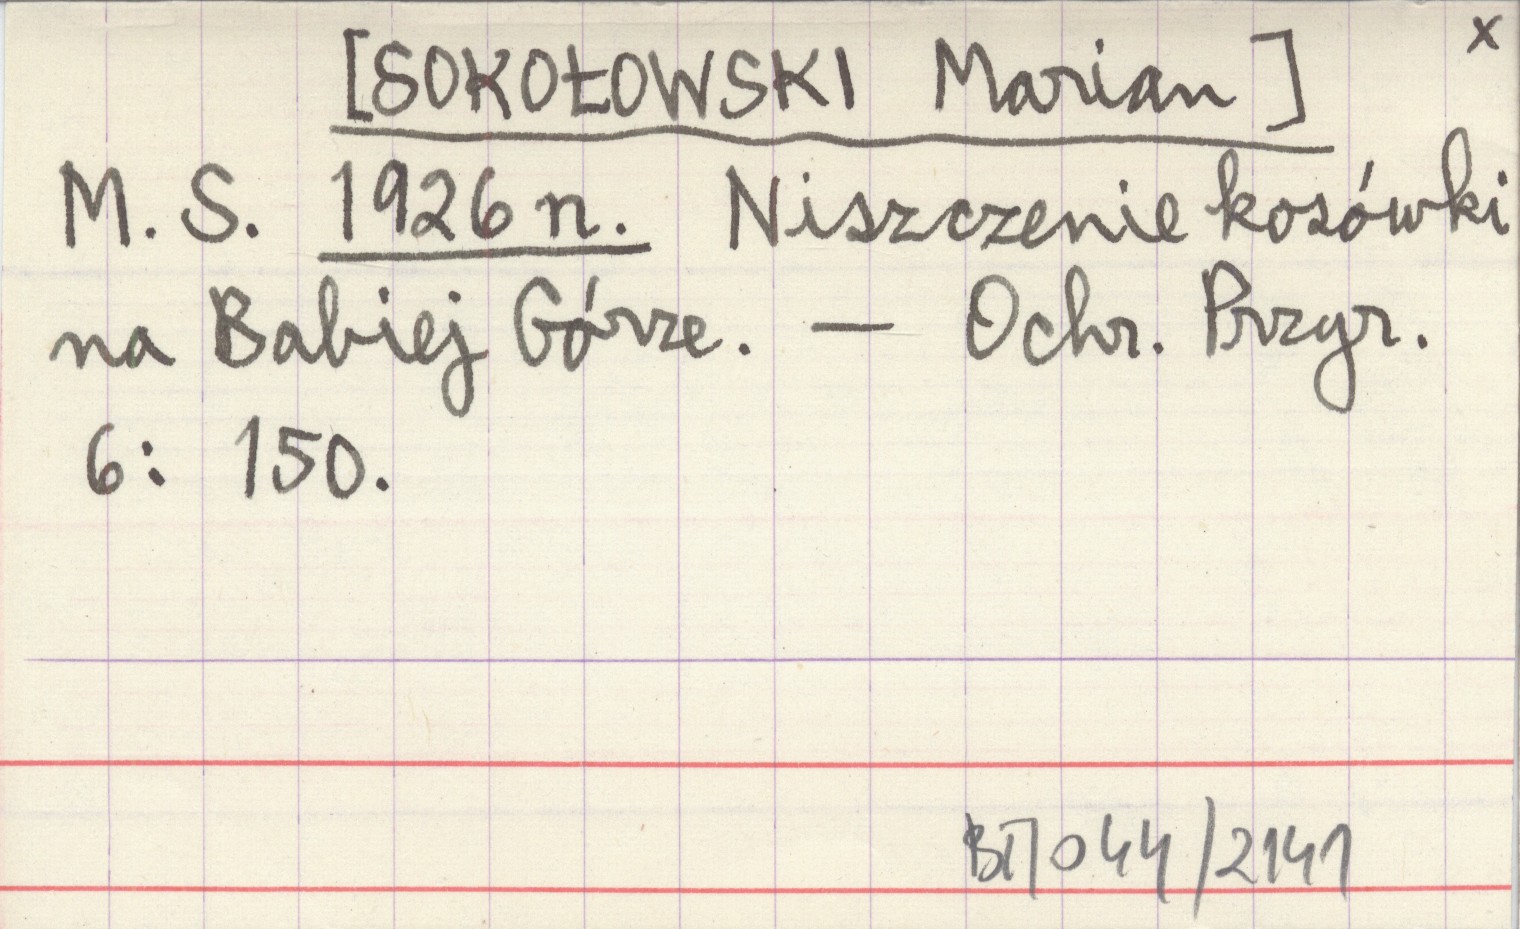 x
[SOKOŁOWSKI Marian]
M. S. 1926 n. Niszczenie kosówki
na Babiej Górze. — Ochr. Przyr.
6: 150.
044/2141